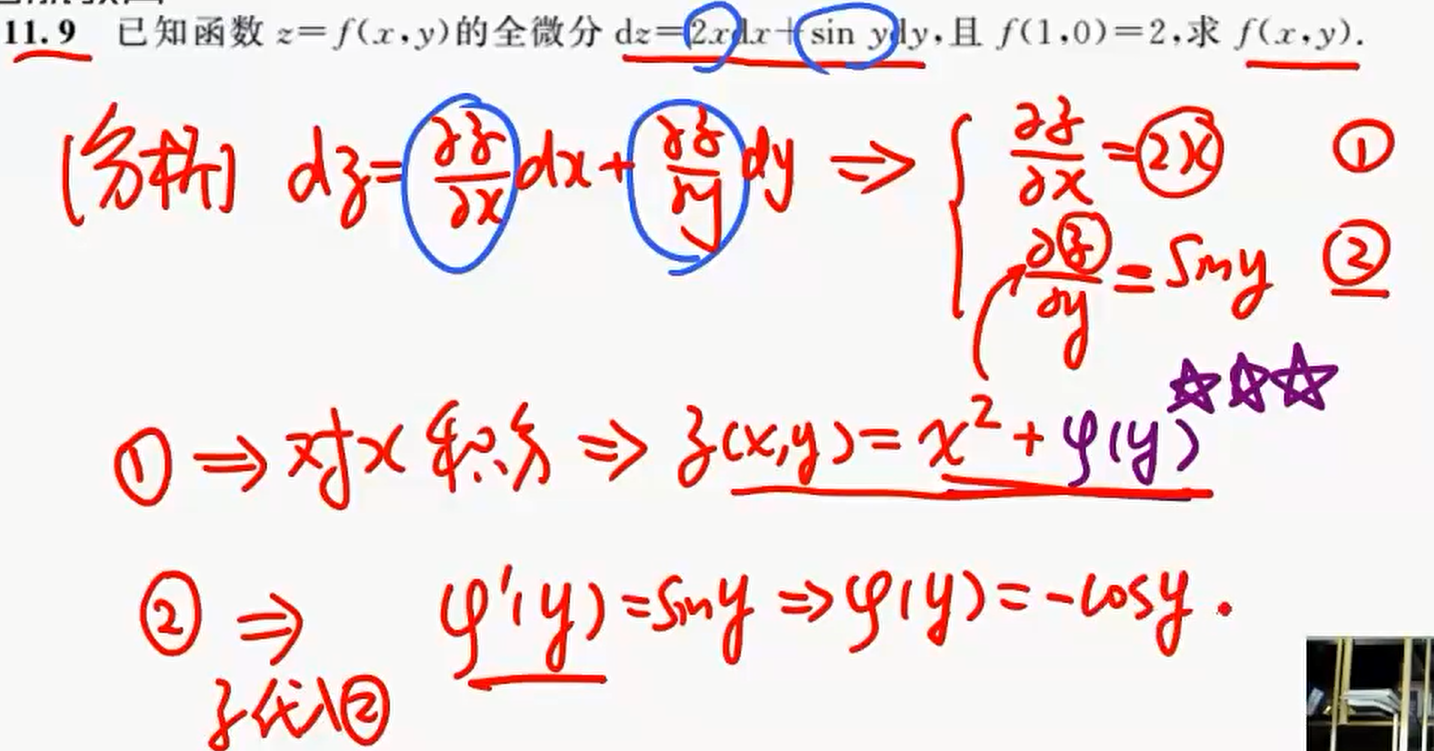 11.9 已知函数 z=f(x,y)的全微分 dz=2xdx+sin ydy,且 f(1,0)=2,求 f(x,y).
[分析] dz=∂z/∂x dx+∂z/∂y dy ⇒ { ∂z/∂x=2x ①
∂z/∂y=sin y ②
① ⇒ 对x积分 ⇒ z(x,y)=x²+φ(y) ☆☆☆
② ⇒ φ'(y)=sin y ⇒ φ(y)=-cos y.
z代入②